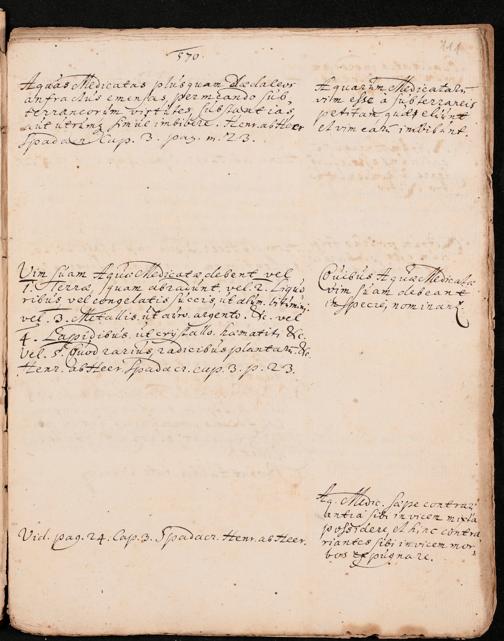 570.
Aquas Medicatas plusquam Daedaleos
anfractus emensas, permeando sub,
terraneorum virtutes, substantias
aut utrumq simul imbibere. Henr. ab Heer
Spadacr. Cap. 3. pag. m. 23.
Aquarum Medicatarum
vim esse a subterraneis
petitam quae eluunt
et vim eam imbibunt.
Vim suam Aquae Medicatae debent vel
1. Terrae, quam abradunt. vel. 2. Liquo
ribus vel congelatis succis, ut alum.
vel. 3. Metallis, ut auro. argento. &c. vel
4. Lapidibus, ut crystallo. hamatit. &c.
vel. 5. Quod rarius, radicibus plantar. &c.
Henr. ab Heer. Spadacr. cap. 3. p. 23.
Quibus Aquae Medicatae
vim suam debeant
in specie, nominant
Vid. pag. 24. Cap. 3. Spadacr. Henr. ab Heer.
Aq. Medic. saepe contrari
antia sibi invicem mixta
possidere, et hinc contra
riantes sibi invicem mor
bos expugnare.